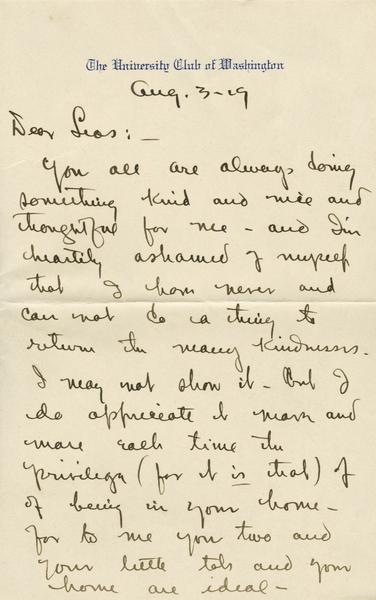 The University Club of Washington
Aug. 3-19
Dear Leas: —
You all are always doing
something kind and nice and
thoughtful for me - and I'm
heartily ashamed of myself
that I have never and
can not do a thing to
return the many kindnesses.
I may not show it - But I
do appreciate it more and
more each time the
privilege (for it is that) of
of being in your home -
for to me you two and
your little tots and your
home are ideal -